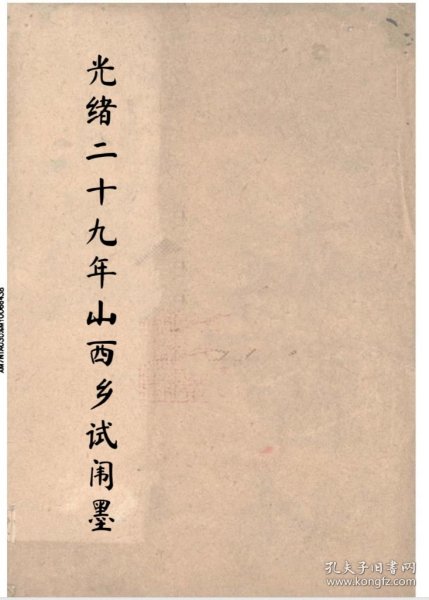 光绪二十九年山西乡试闱墨
孔夫子旧书网
www.kongfz.com